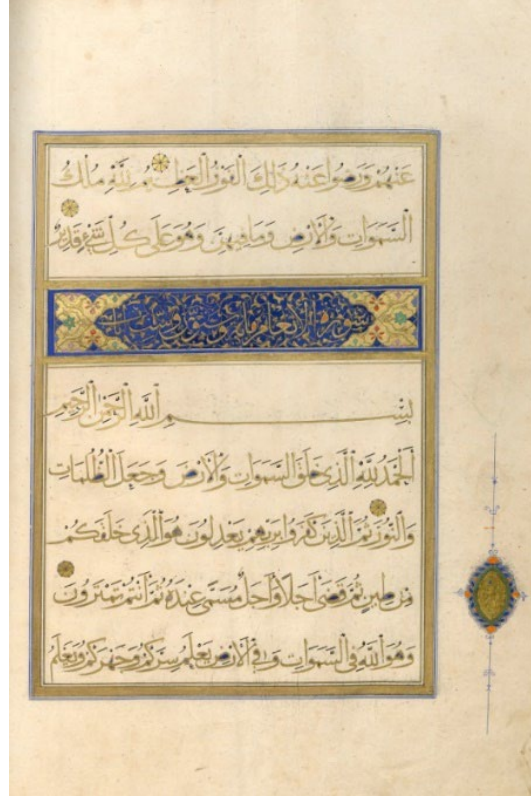 عَنْهُمْ وَرَضُوا عَنْهُ ذَٰلِكَ الْفَوْزُ الْعَظِيمُ لِلَّهِ مُلْكُ
السَّمَوَاتِ وَالْأَرْضِ وَمَا فِيهِنَّ وَهُوَ عَلَى كُلِّ شَيْءٍ قَدِيرٌ
سورة الأنعام مائة وستون
بِسْمِ اللَّهِ الرَّحْمَنِ الرَّحِيمِ
الْحَمْدُ لِلَّهِ الَّذِي خَلَقَ السَّمَوَاتِ وَالْأَرْضَ وَجَعَلَ الظُّلُمَاتِ
وَالنُّورَ ثُمَّ الَّذِينَ كَفَرُوا بِرَبِّهِمْ يَعْدِلُونَ هُوَ الَّذِي خَلَقَكُمْ
مِنْ طِينٍ ثُمَّ قَضَى أَجَلًا وَأَجَلٌ مُسَمًّى عِنْدَهُ ثُمَّ أَنْتُمْ تَمْتَرُونَ
وَهُوَ اللَّهُ فِي السَّمَوَاتِ وَفِي الْأَرْضِ يَعْلَمُ سِرَّكُمْ وَجَهْرَكُمْ وَيَعْلَمُ